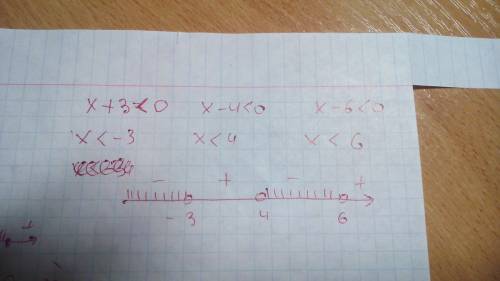 x+3<0 x-4<0 x-6<0
x<-3 x<4 x<6
- + - +
-3 4 6
+